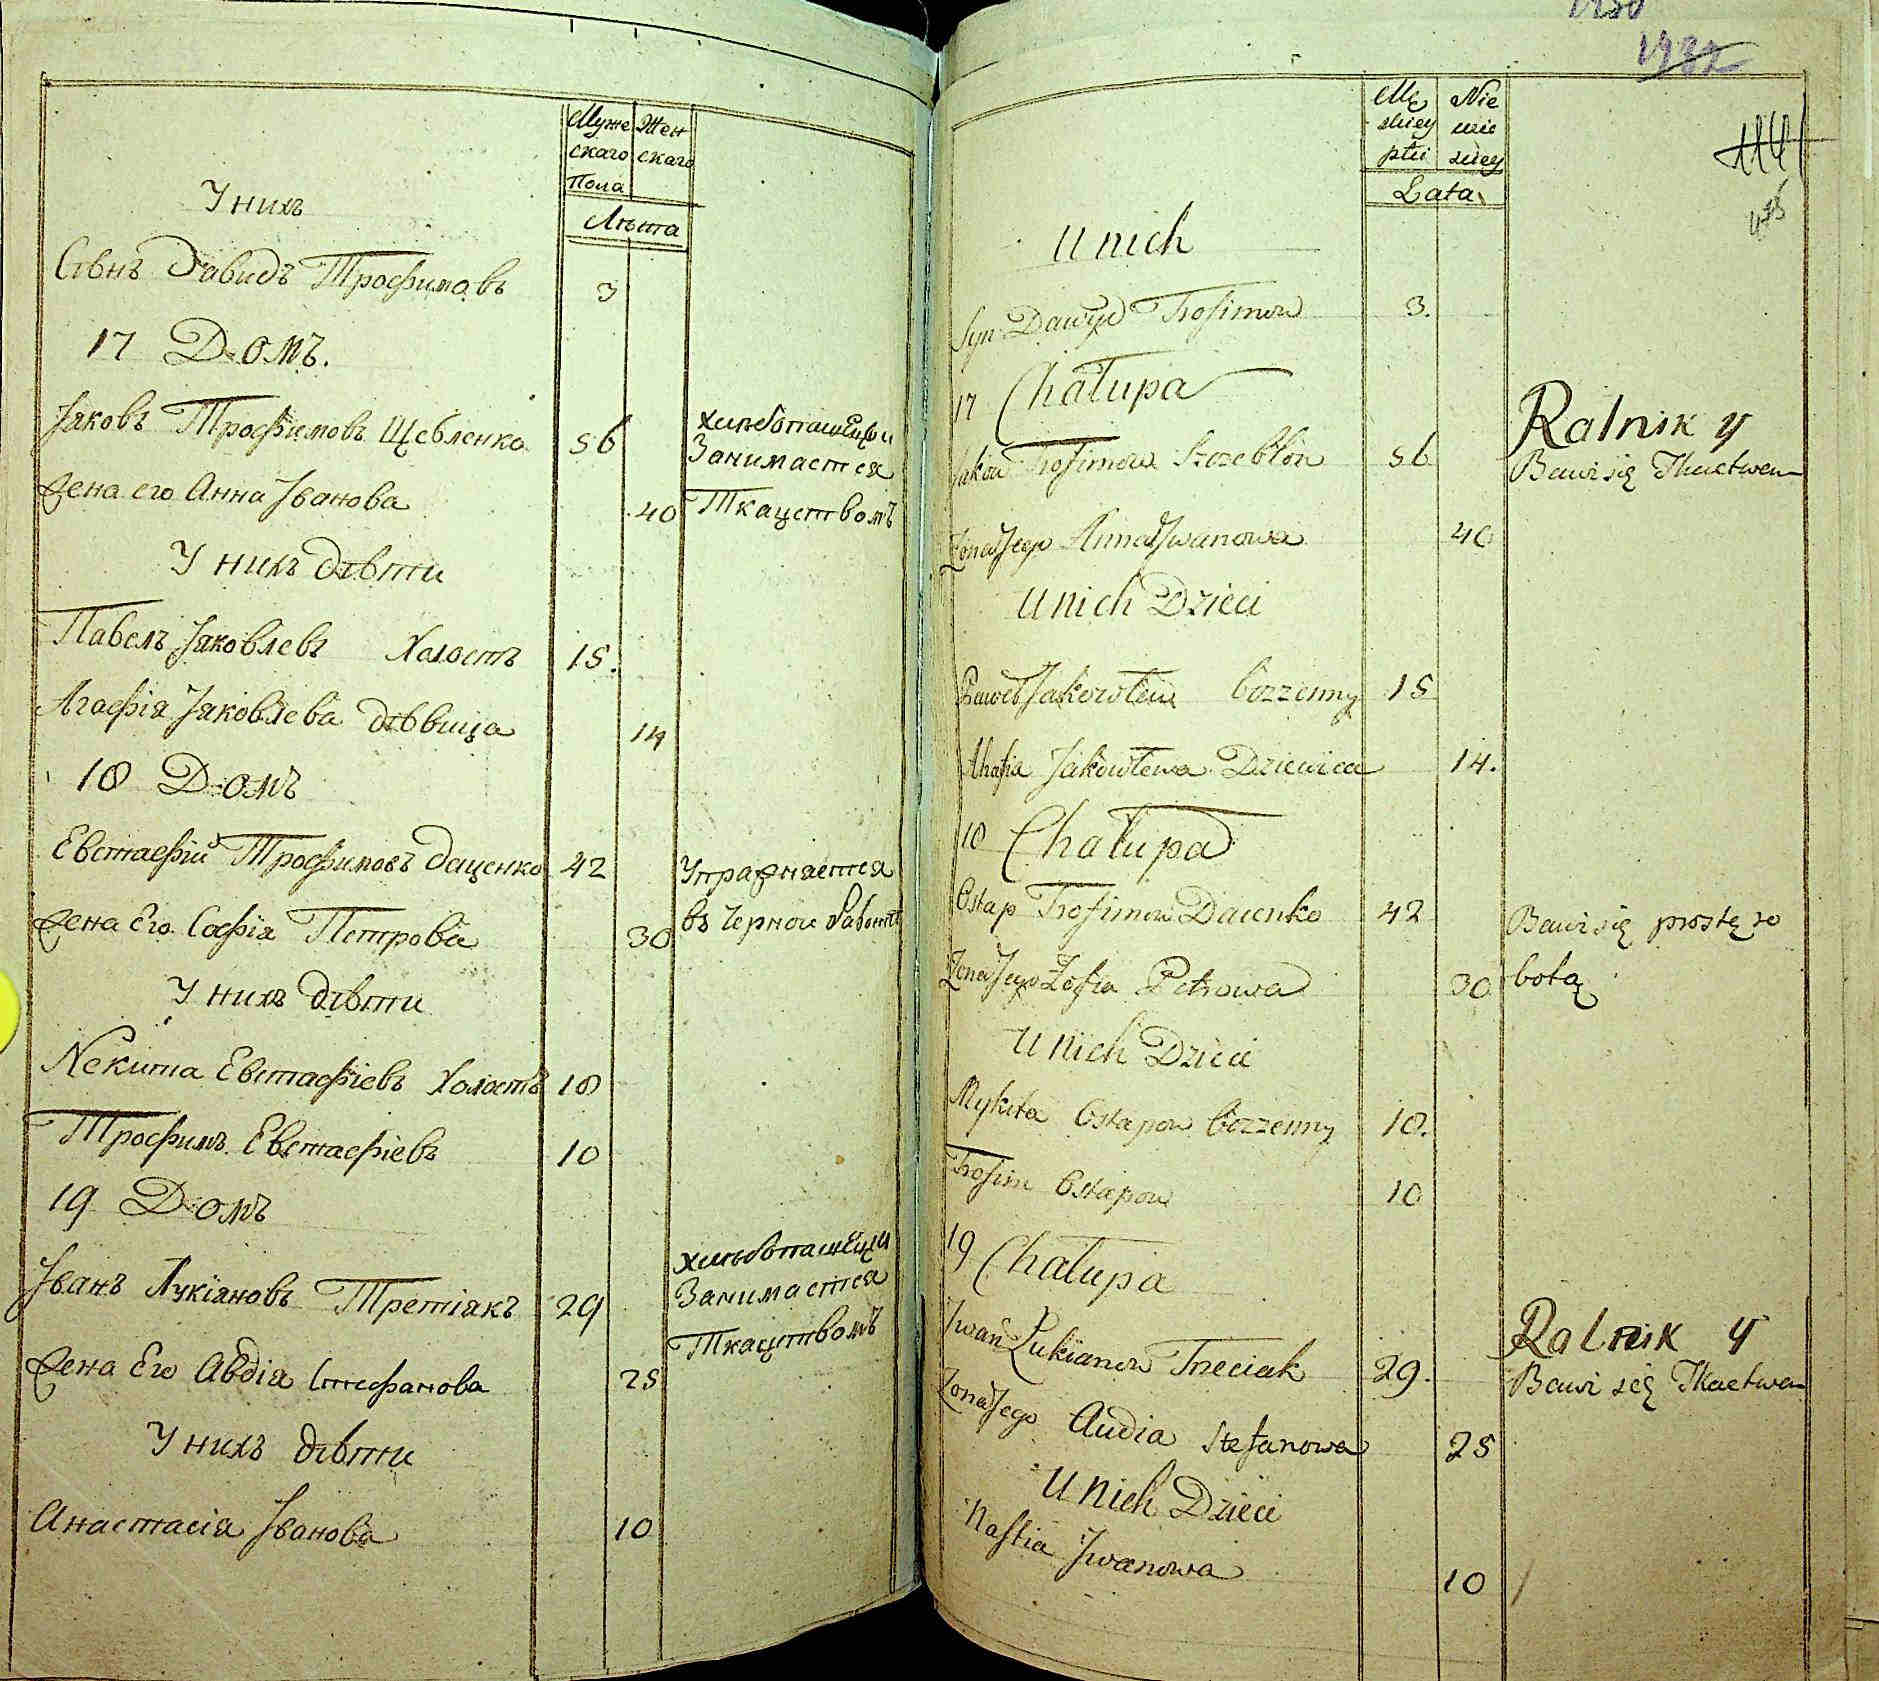 Муже Жен
скаго скаго
Пола
Лѣта
У нихъ
Сынъ Давидъ Трофимовъ 3
17 Домъ.
Яковъ Трофимовъ Щебленко 56 хлѣбопашецъ и
Занимается
Жена его Анна Іванова 40 Ткацствомъ
У нихъ дѣти
Павелъ Яковлевъ Холостъ 15.
Агафія Яковлева дѣвица 14
18 Домъ
Евстафій Трофимовъ Даценко 42 Упражняется
Жена Его Софія Петрова 30 въ Черной работѣ
У нихъ дѣти
Некита Евстафіевъ Холостъ 18
Трофимъ Евстафіевъ 10
19 Домъ
хлѣбопашецъ и
Іванъ Лукіановъ Третіакъ 29 Занимается
Ткацствомъ
Жена Его Авдія Стефанова 25
У нихъ дѣти
Анастасія Іванова 10
1932
Mę Nie
skiey wie
płci skiey
Lata
418
U nich
Syn Dawyd Trofimow 3.
17 Chałupa
Ralnik y
Jakow Trofimow Szczeblon 56 Bawi się Tkactwem
Żona Jego Anna Jwanowa 40
U nich Dzieci
Paweł Jakowlew bezzenny 15
Ahafia Jakowlewa Dziewica 14.
18 Chałupa
Ostap Trofimow Dacenko 42 Bawi się prostą ro
Żona Jego Zofia Petrowa 30 botą
U nich Dzieci
Mykita Ostapow bezzenny 18.
Trofim Ostapow 10
19 Chałupa
Ralnik y
Jwan Łukianow Treciak 29. Bawi się Tkactwem
Żona Jego Audia Stefanowa 25
U nich Dzieci
Nastia Jwanowa 10